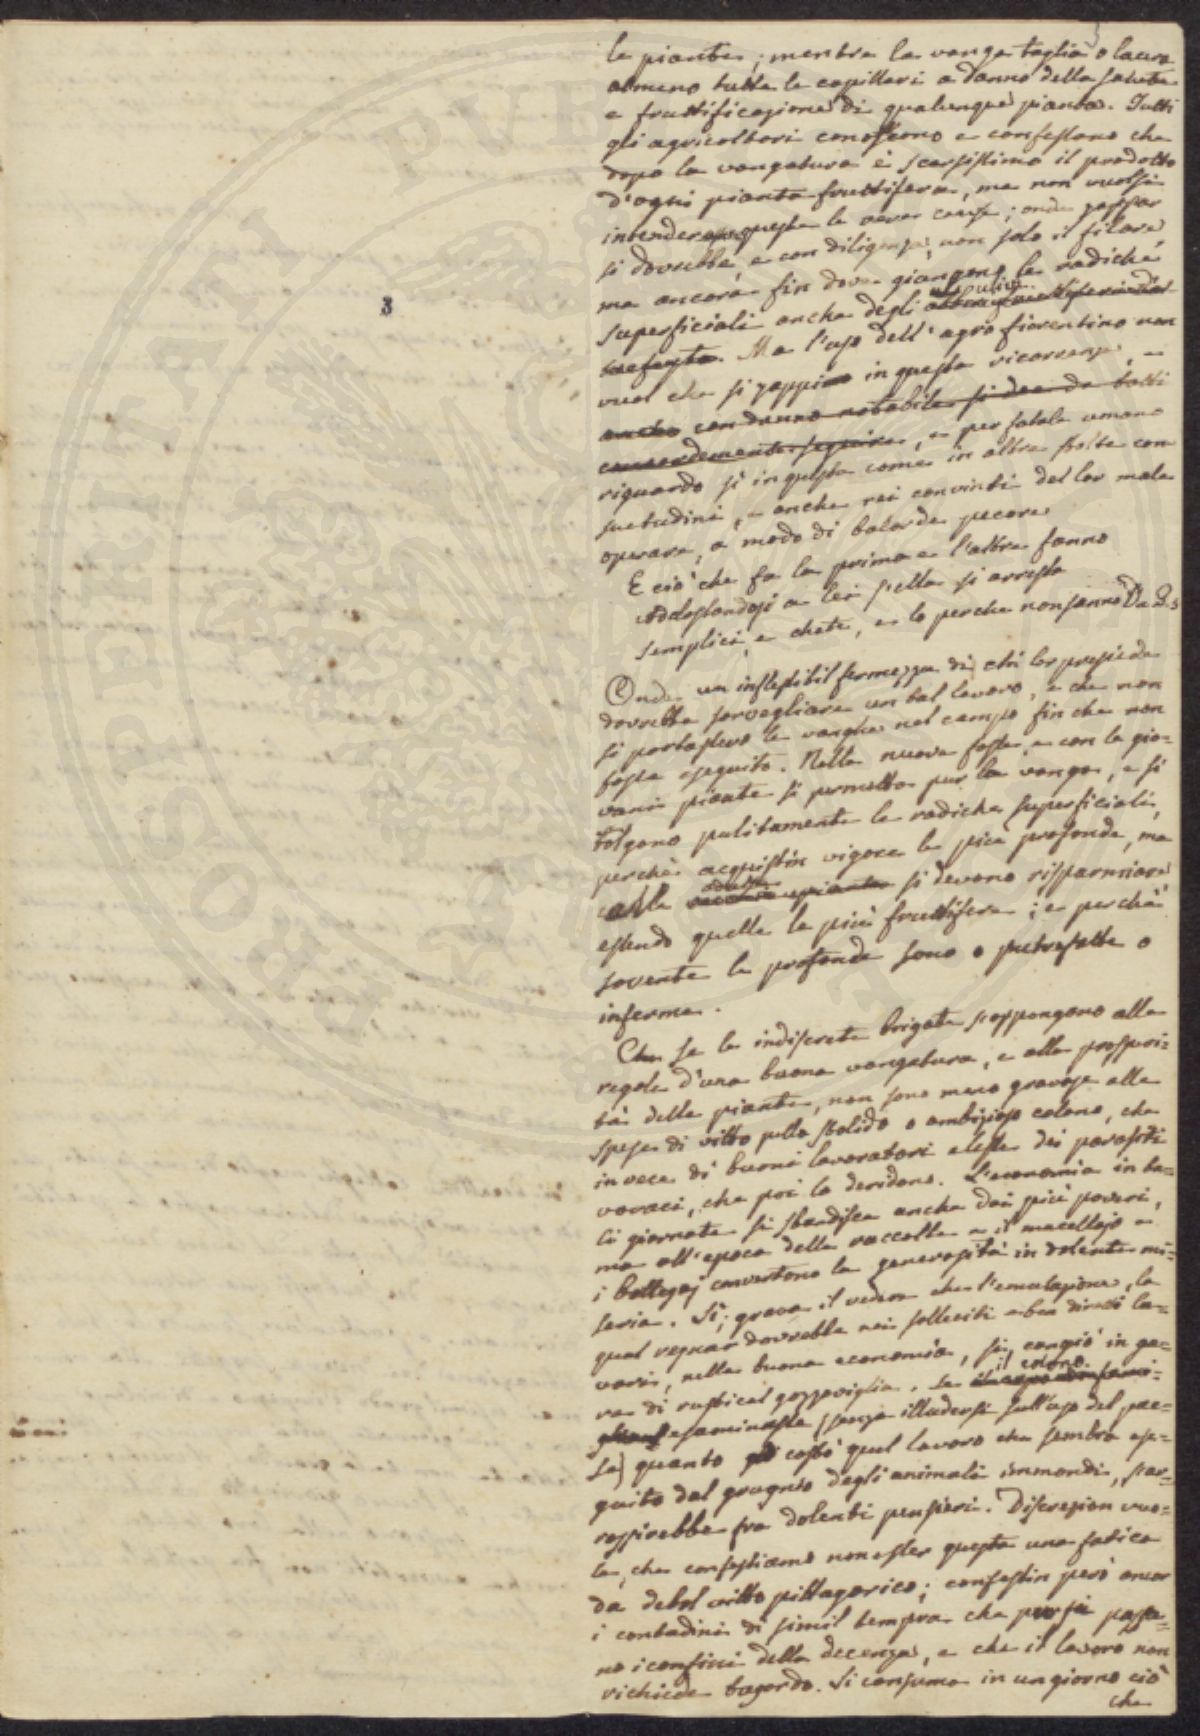 3
le piante; mentre la vanga taglia o lacera
almeno tutte le capillari a danno della salute
e fruttificazione di qualunque pianta. Tutti
gli agricoltori conoscono e confessano che
dopo la vangatura è scarsissimo il prodotto
d'ogni pianta fruttifera, ma non vuolsi
intendere questa la vera causa; onde zappar
si dovrebbe, e con diligenza, non solo il filare,
ma ancora fin dove giungono le radiche
superficiali anche degli ulivi
. Ma l'uso dell'agro fiorentino non
vuol che si zappi in questa ricorrenza, e
anche con danno notabile si dee da tutti
concordemente seguire, e per fatale umano
riguardo si in questa come in altre stolte con
suetudini, e anche rei convinti del lor male
operare, a modo di balorde pecore
E ciò che fa la prima e l'altre fanno
Addossandosi a lei s'ella si arresta
semplici, e chete, e lo perche non sanno Da
Onde un inflessibil fermezza di chi lor presiede
dovrebbe sorvegliare un tal lavoro, e che non
si portassero le vanghe nel campo fin che non
fosse eseguito. Nelle nuove fosse, e con le gio=
vani piante si permetta pur la vanga, e si
tolgano pulitamente le radiche superficiali,
perchè acquistin vigore le più profonde, ma
alle adulte si devono risparmiare
essendo quelle le più fruttifere; e perchè
sovente le profonde sono o putrefatte o
inferme.
Che se le indiscrete brigate si oppongono alle
regole d'una buona vangatura, e alla prosperi=
tà delle piante, non sono meno gravose alle
spese di vitto pello stolido o ambizioso colono, che
invece di buoni lavoratori elesse dei parasiti
voraci, che poi lo deridono. L'economia in ta=
li giornate si sbandisce anche dai più poveri,
ma all'epoca delle raccolte e il macellajo e
i bottegaj convertono la generosità in dolente mi=
seria. Sì; grava il veder che l'emulazione, la
qual regnar dovrebbe nei solleciti e ben diretti la=
vori, nella buona economia, si cangiò in ga=
ra di rustical gozzoviglia. Se il colono
esaminasse (senza illudersi sull'uso del pae=
se) quanto costò quel lavoro che sembra ese=
guito dal grugno degli animali immondi, ar=
rossirebbe fra dolenti pensieri. Discrezion vuo=
le, che confessiamo non esser questa una fatica
da debol vitto pittagorico; confessin però ancor
i contadini di simil tempra che pur si passa=
no i confini della decenza, e che il lavoro non
richiede bagordo. Si consuma in un giorno ciò
che